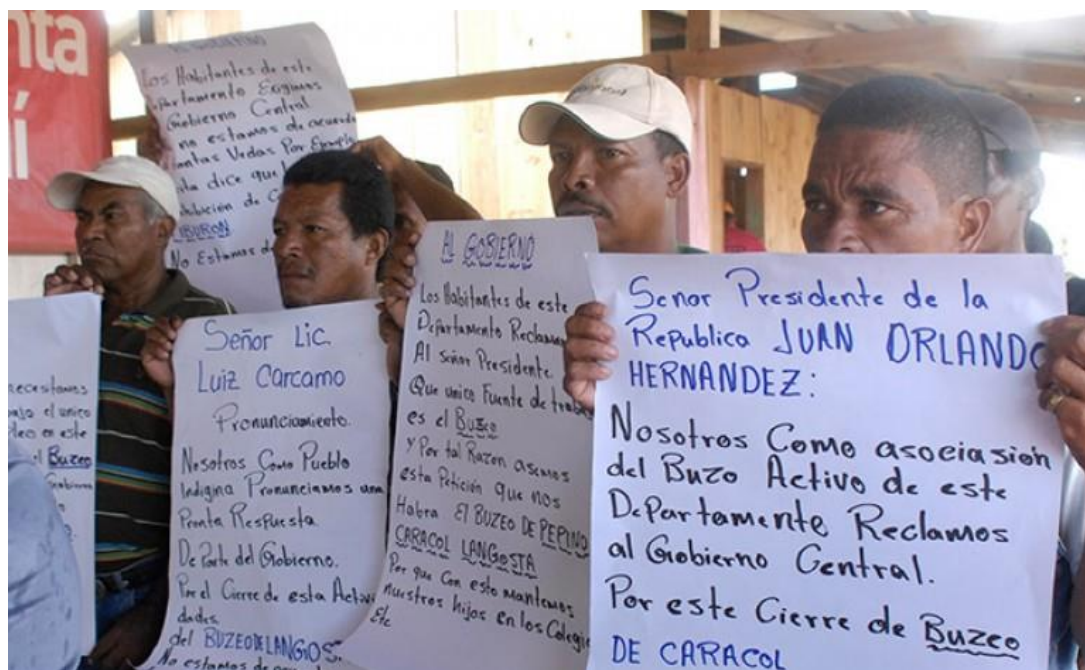 nta
í
AL GOBIERNO
Los Habitantes de este
Departamento Exigimos
Gobierno Central
no estamos de acuerdo
tantas Vedas Por Ejemplo
dice que
de
TIBURON
No Estamos de
necesitamos
el unico
en este
el Buzeo
Gobierno
Señor Lic.
Luiz Carcamo
Pronunciamiento.
Nosotros Como Pueblo
Indigina Pronunciamos una
Pronta Respuesta
De Parte del Gobierno.
Por el Cierre de esta Activi
dades.
del BUZEO DE LANGIOS.
No estamos de
AL GOBIERNO
Los Habitantes de este
Departamento Reclamos
Al señor Presidente.
Que unico Fuente de trabajo
es el Buzeo
y Por tal Razon asemos
esta Petición que nos
Habra El BUZEO DE PEPINO
CARACOL LANGOSTA
Por que Con esto mantemos
nuestros hijos en los Colegio
Etc
Senor Presidente de la
Republica JUAN ORLANDO
HERNANDEZ:
Nosotros Como asociasión
del Buzo Activo de este
Departamente Reclamos
al Gobierno Central.
Por este Cierre de Buzeo
DE CARACOL